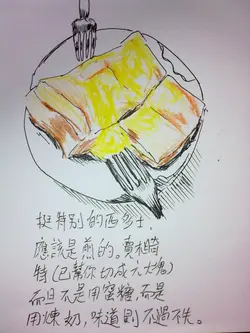 挺特別的西多士，
應該是煎的。賣相奇
特(已幫你切成六大塊)
而且不是用蜜糖，而是
用煉奶，味道則不過不失。